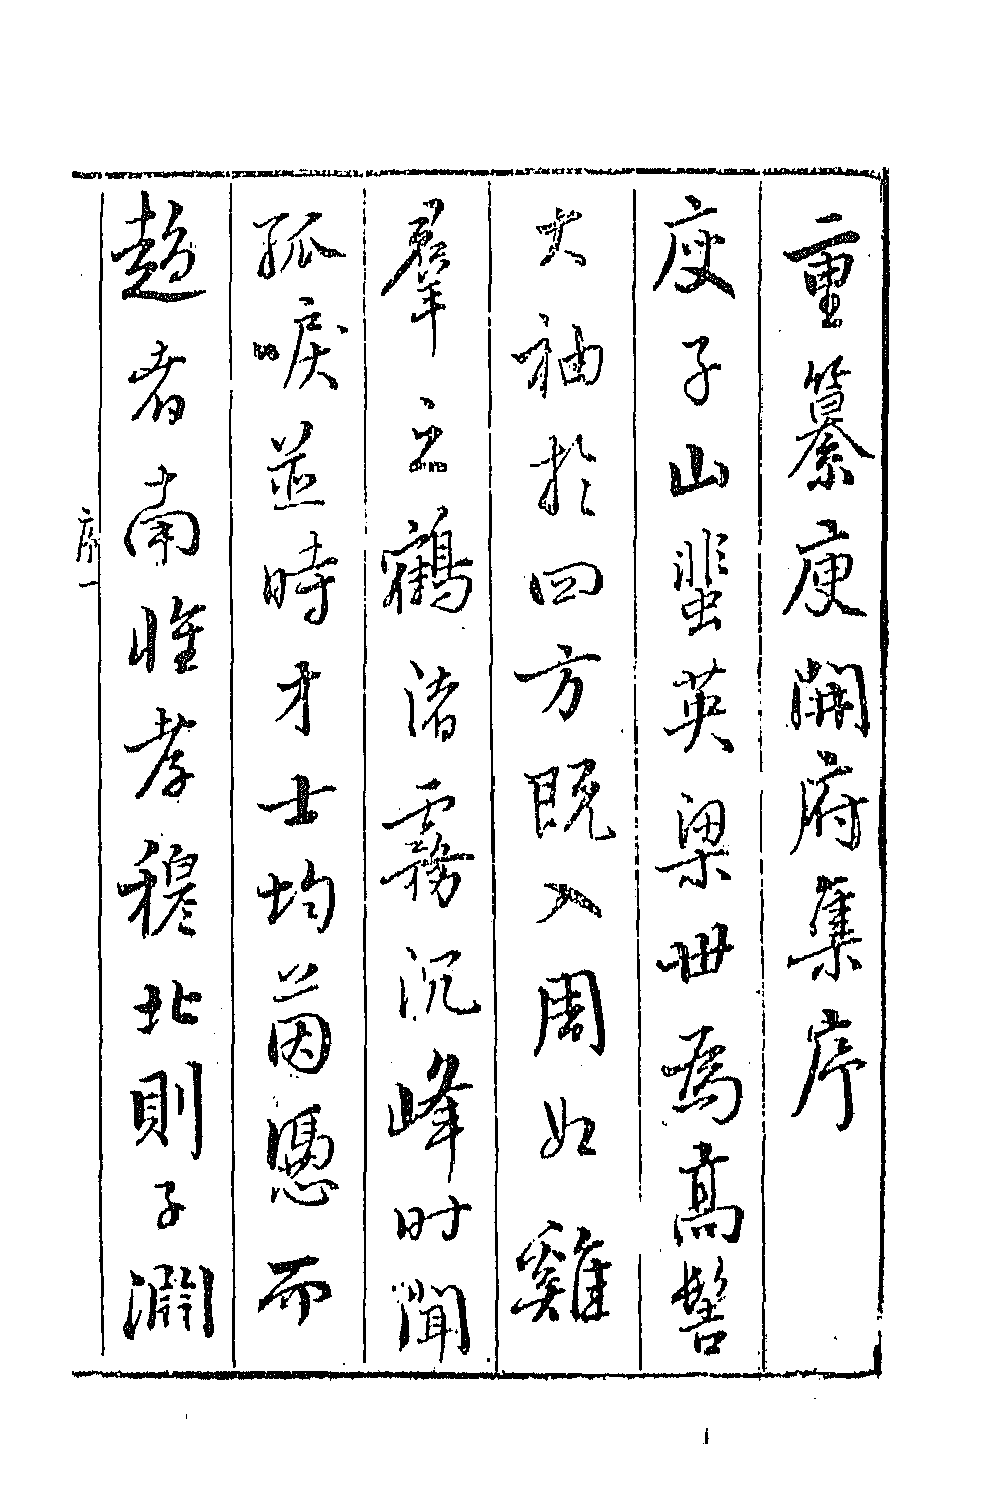 重纂庾開府集序
庾子山蜚英梁世爲高髻
大袖於四方既入周如雞
羣立鶴渚霧沉峰时聞
孤唳並時才士均茵憑而
趨者南惟孝穆北則子淵
序一